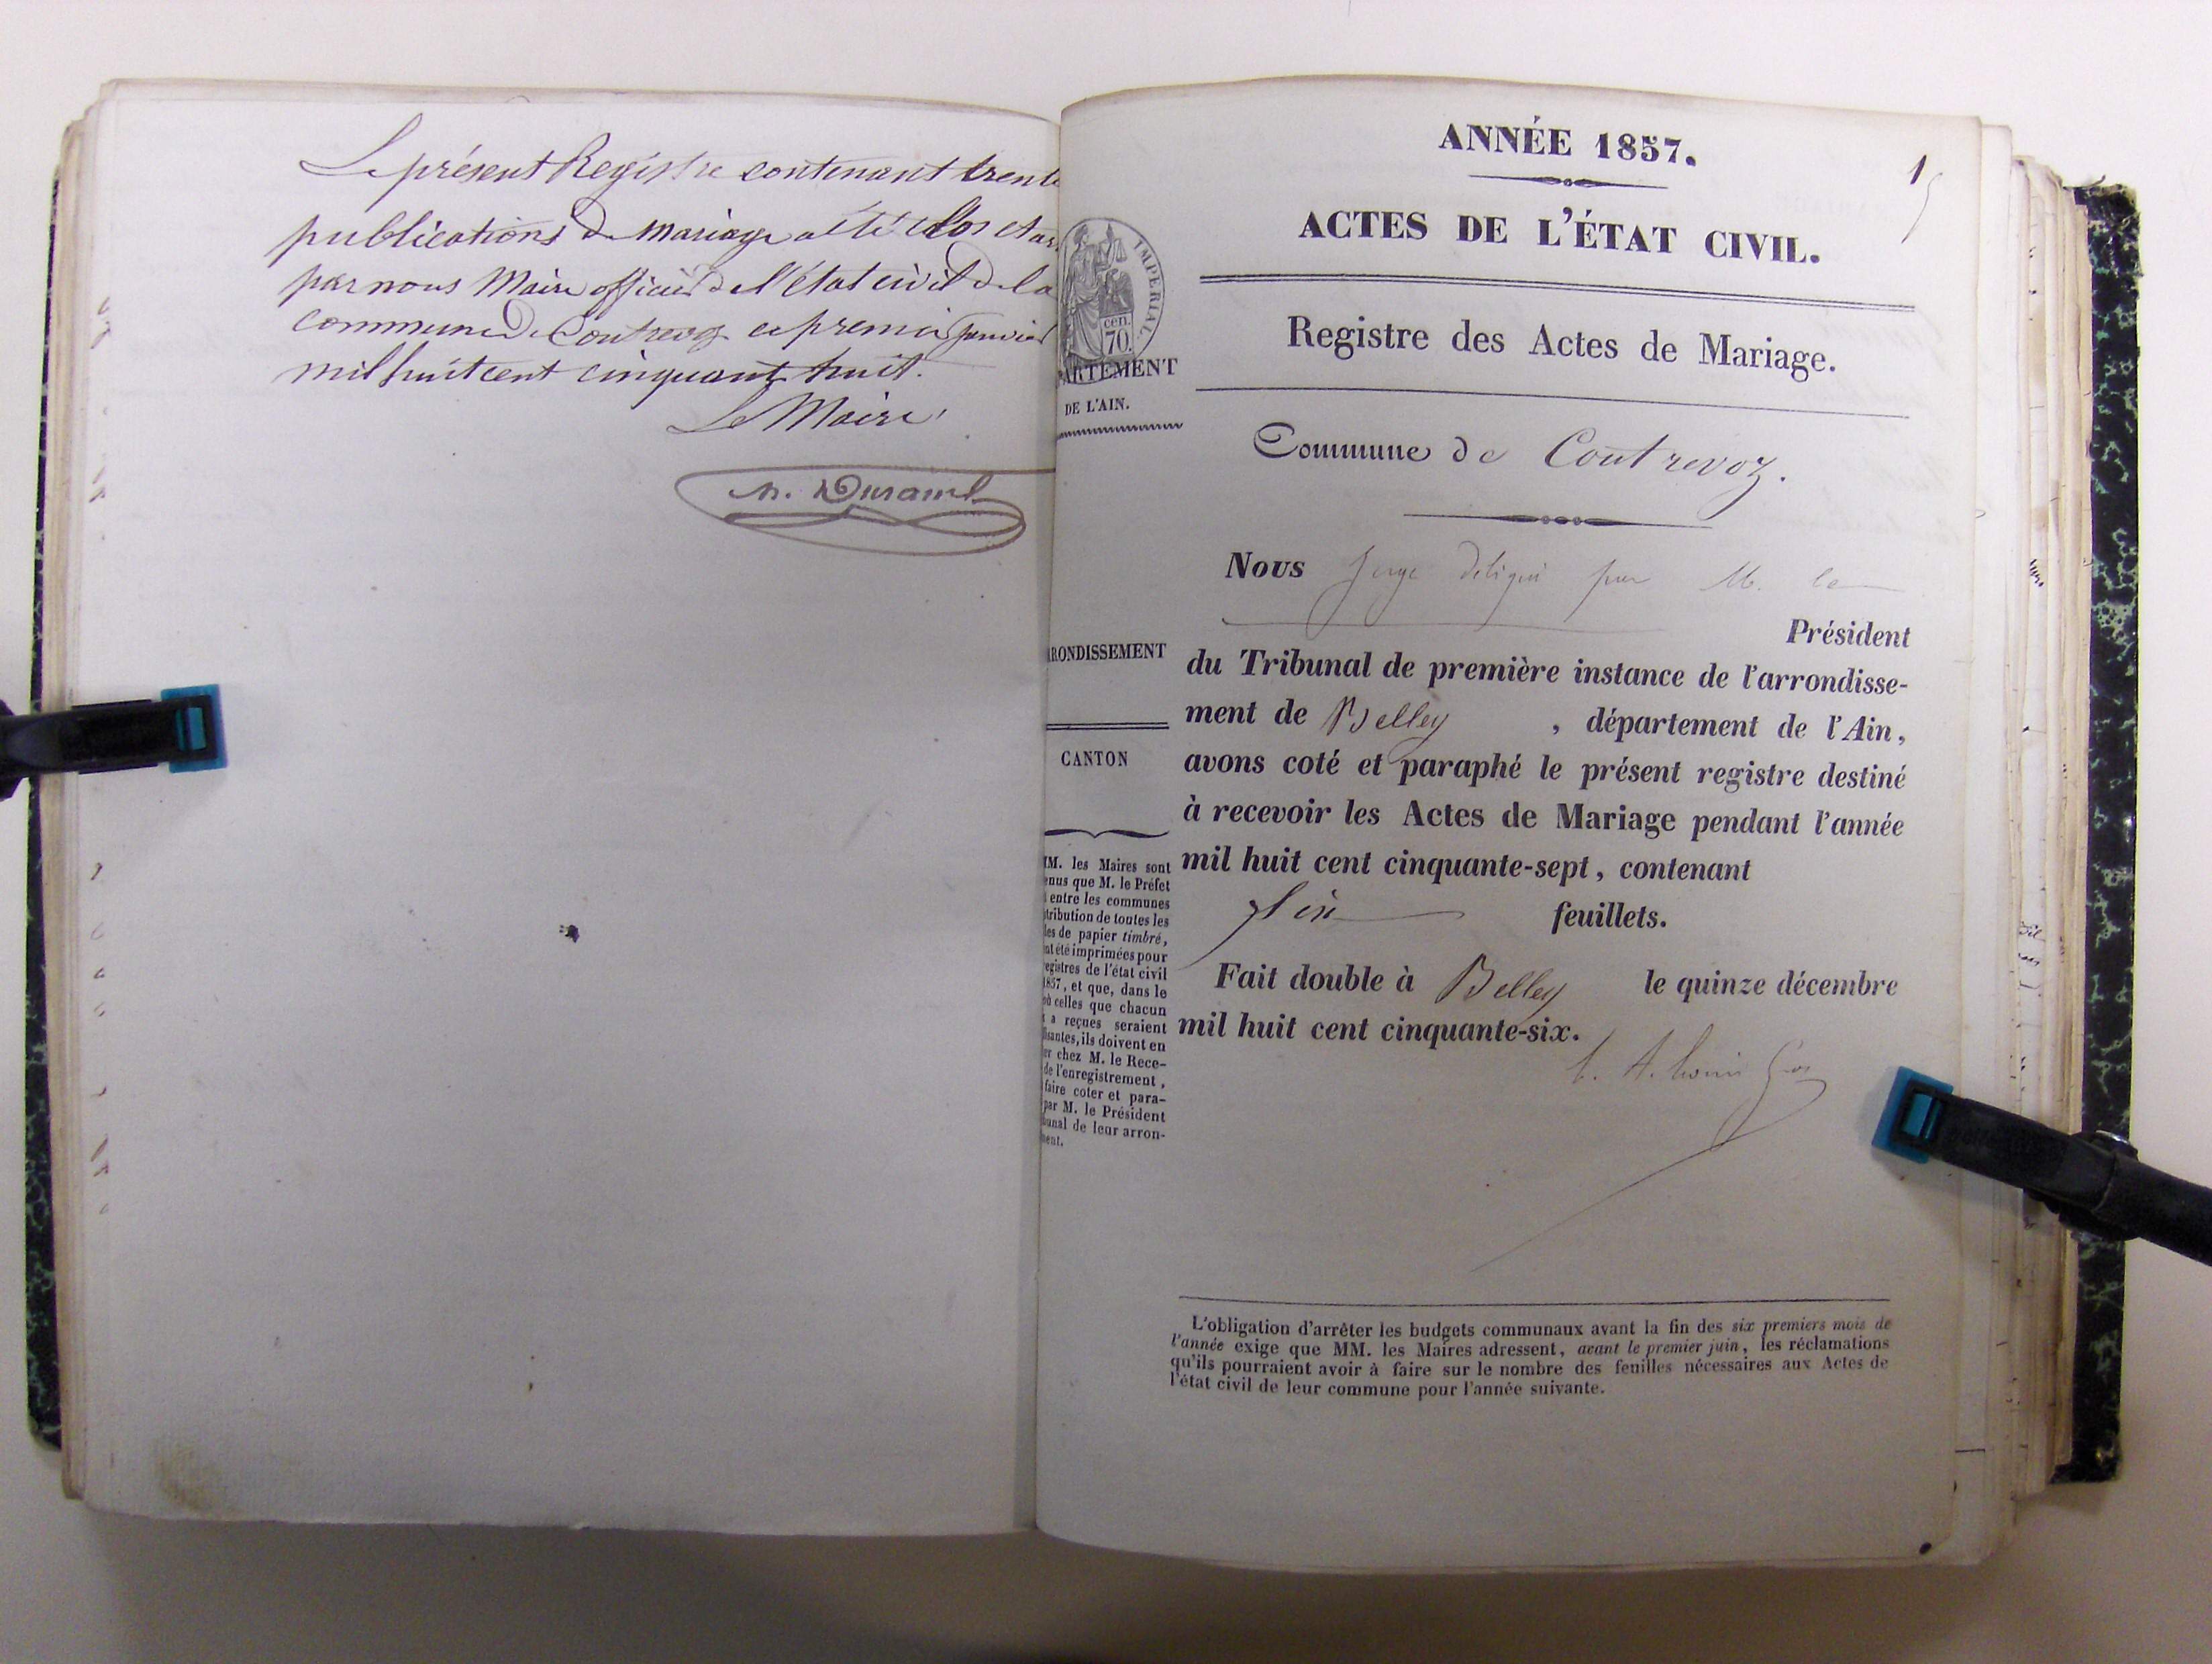 Le présent Registre contenant trente
publications de mariage a été clos et ar
par nous Maire officier de l'état civil de la
commune de Contrevoz ce premier janvier
mil huit cent cinquante huit.
Le Maire
n. Durand
ANNÉE 1857.
1
ACTES DE L'ÉTAT CIVIL.
IMPERIAL
cen.
70.
Registre des Actes de Mariage.
ARTEMENT
DE L'AIN.
Commune de Contrevoz.
Nous Juge délégué par M. le
Président
RONDISSEMENT
du Tribunal de première instance de l'arrondisse-
ment de Belley, département de l'Ain,
CANTON
avons coté et paraphé le présent registre destiné
à recevoir les Actes de Mariage pendant l'année
mil huit cent cinquante-sept, contenant
feuillets.
Fait double à Belley le quinze décembre
mil huit cent cinquante-six.
MM. les Maires sont
enus que M. le Préfet
entre les communes
tribution de toutes les
les de papier timbré,
nt été imprimées pour
egistres de l'état civil
1857, et que, dans le
où celles que chacun
a reçues seraient
isantes, ils doivent en
er chez M. le Rece-
de l'enregistrement,
faire coter et para-
par M. le Président
bunal de leur arron-
ment.
L'obligation d'arrêter les budgets communaux avant la fin des six premiers mois de
l'année exige que MM. les Maires adressent, avant le premier juin, les réclamations
qu'ils pourraient avoir à faire sur le nombre des feuilles nécessaires aux Actes de
l'état civil de leur commune pour l'année suivante.